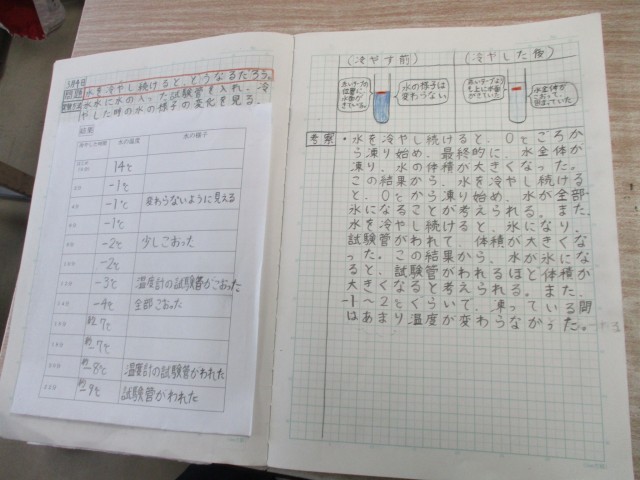 1月4日
水を冷やし続けると、どうなるだろう。
氷水に水の入った試験管を入れ、冷
やした時の水の様子の変化を見る。
結果
冷やした時間 水の温度 水の様子
14℃
2分 -1℃
4分 -1℃ 変わらないように見える
-1℃
8分 -2℃ 少しこおった
-2℃
-3℃ 温度計の試験管がこおった
-4℃ 全部こおった
約 7℃
約 -7℃
約 -8℃ 温度計の試験管がわれた
約 -9℃ 試験管がわれた
(冷やす前) (冷やした後)
水の様子は
変わらない
水全体が
こおって、
考察 ・水を冷やし続けると、0℃ごろか
ら凍り始め、最終的に、水全体が
凍り、水の体積が大きくなった。
この結果から、水を冷やし続ける
と、0℃から凍り始め、水が全部
氷になることが考えられる。また、
水を冷やし続けると、氷になり、
試験管がわれて、体積が大きくな
った。この結果から、水が氷にな
ると、試験管がわれるほど体積が
大きくなると考えられる。また、
-1～2℃ぐらいで、凍っている間
はあまり温度が変わらなかった。